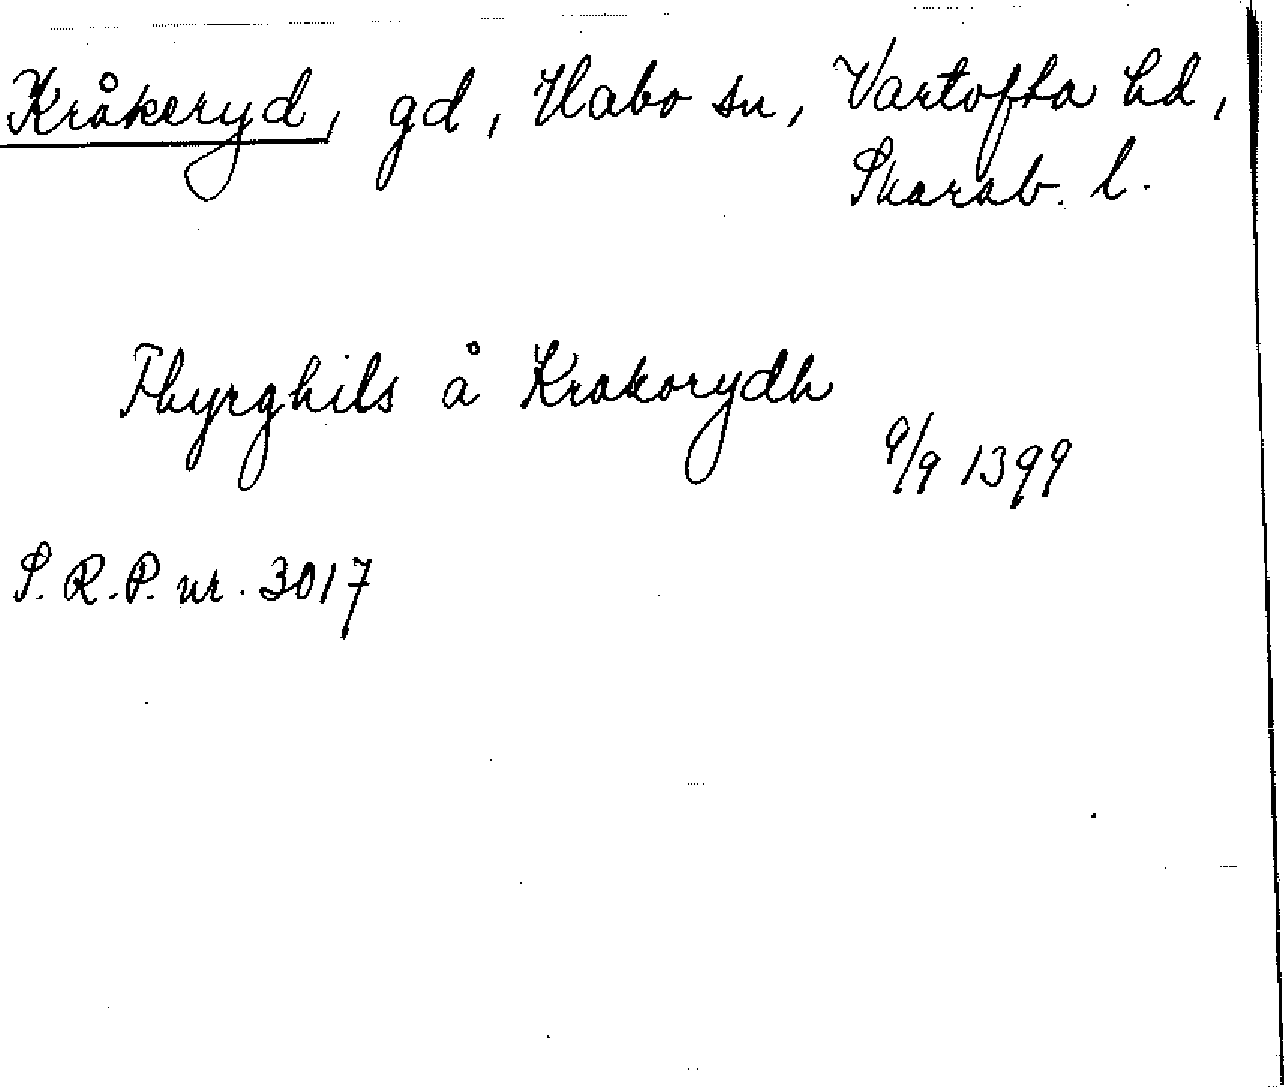 Kråkeryd, gd, Habo sn, Vartofta hd,
Skarab. l.
Thyrghils å Krakorydh
9/9 1399
S.R.P. nr. 3017